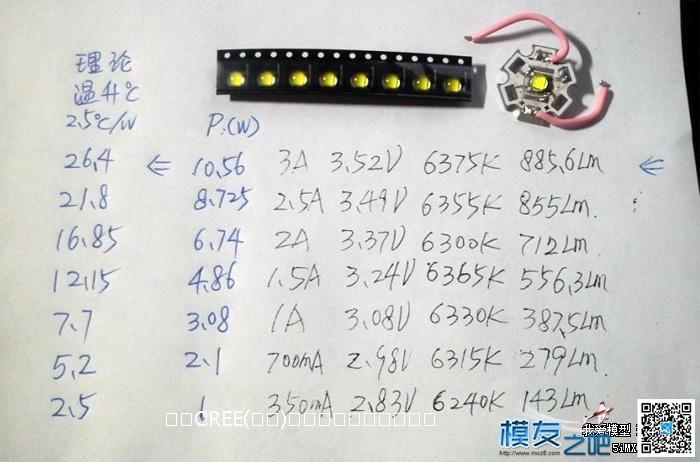 理论
温升℃
2.5℃/W P.(W)
26.4 ← 10.56 3A 3.52V 6375K 885.6Lm ←
21.8 8.725 2.5A 3.49V 6355K 855Lm.
16.85 6.74 2A 3.37V 6300K 712Lm
12.15 4.86 1.5A 3.24V 6365K 556.3Lm
7.7 3.08 1A 3.08V 6330K 387.5Lm
5.2 2.1 700mA 2.98V 6315K 279Lm.
2.5 1 350mA 2.83V 6240K 143Lm
□□CREE(□□)□□□□□□□□□□
模友之吧
www.moz8.com
我爱模型
5iMX